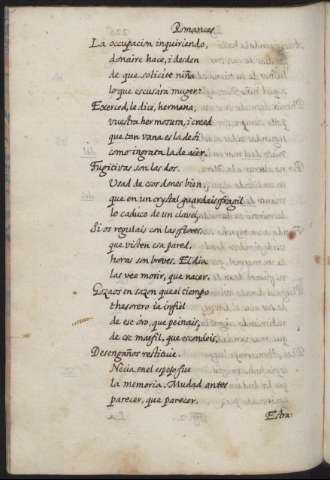 Romances
La occupacion inquiriendo,
donaire hace, i desden
de que solicite niña
lo que escusàra muger.
Exerced, le dice, hermana,
vuestra hermosura, i creed
que tan vana es la de oi
como ingrata la de aier.
Fugitivas son las dos.
Usad de esos dones bien,
que en un crystal guardais fragil
lo caduco de un clavel.
Si os regulais con las flores
que visten esa pared,
horas son breves. El dia
las vee morir, que nacer.
Gozaos en sazon que el tiempo
thesorero ia infiel
de ese òro, que peinais,
de ese marfil, que escondeis,
Desengaños restitue.
Necia en el espejo fue
la memoria. Mudad antes
parecer, que parecer.
Estra